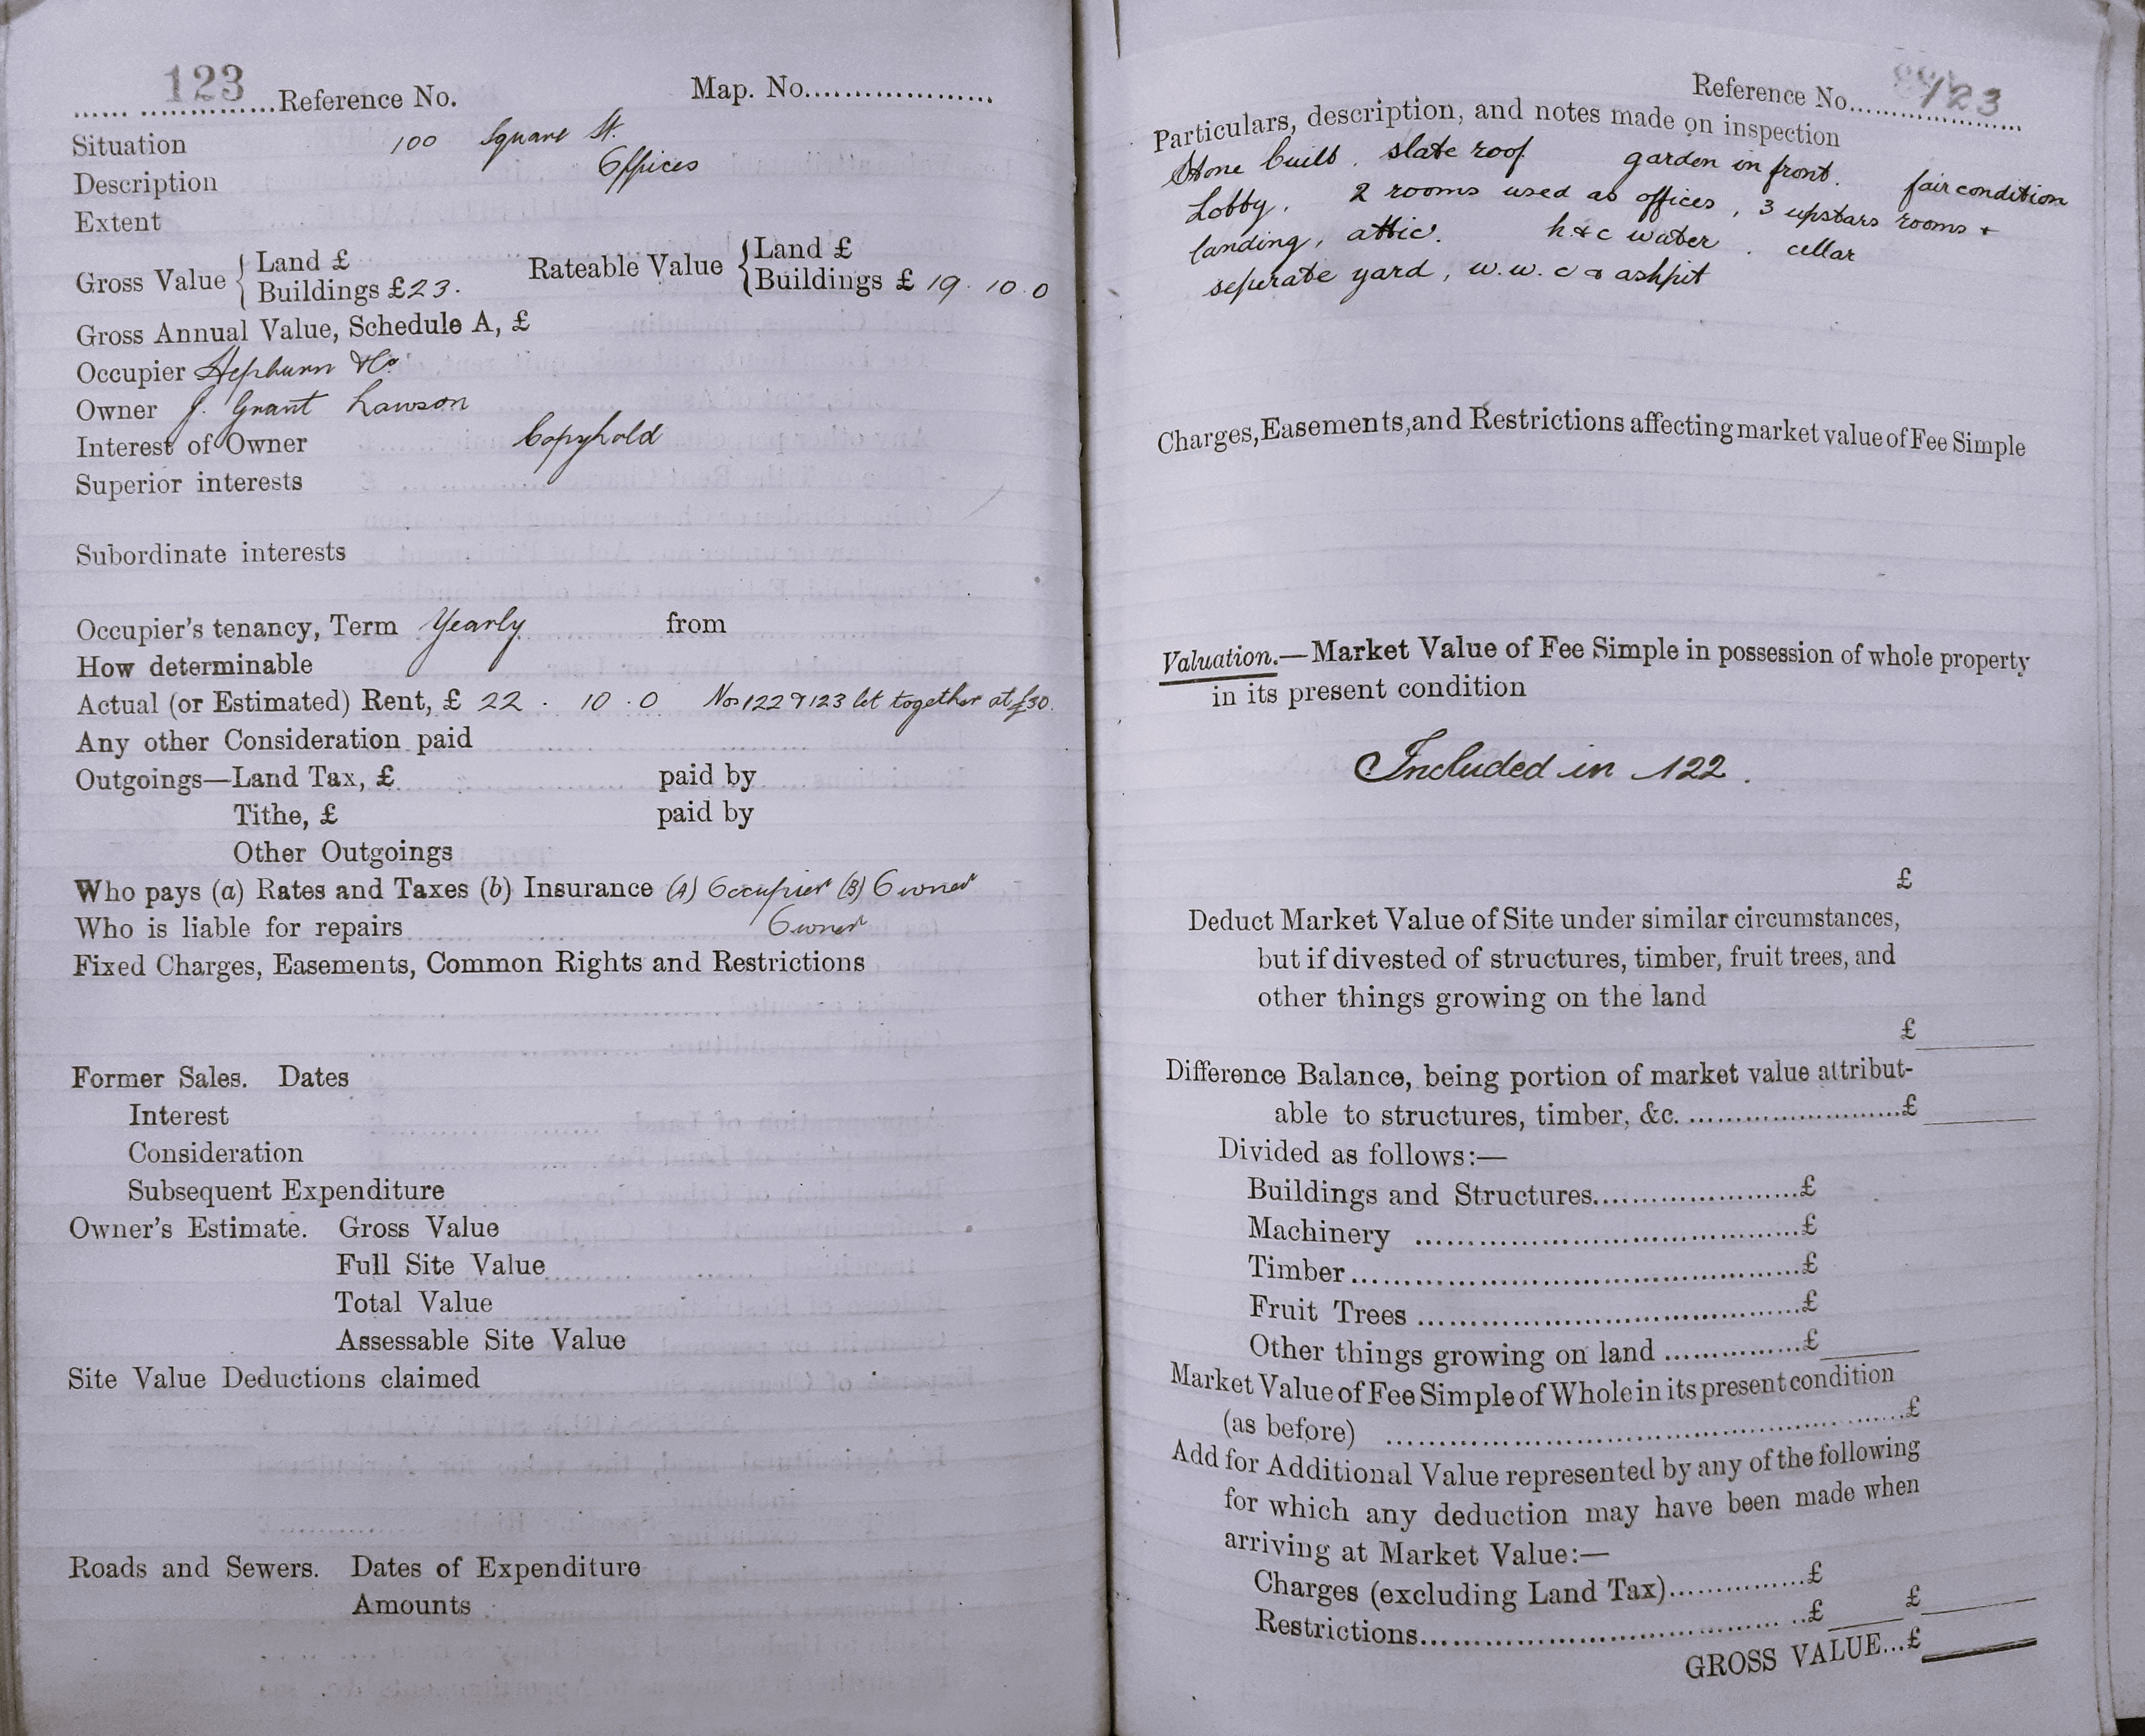 123 Reference No. Map. No.
Situation 100 Square St.
Description Offices
Extent
Gross Value { Land £ Rateable Value { Land £
Buildings £23. Buildings £ 19. 10. 0
Gross Annual Value, Schedule A, £
Occupier Hepburn & Co
Owner J. Grant Lawson
Interest of Owner Copyhold
Superior interests
Subordinate interests
Occupier's tenancy, Term Yearly from
How determinable
Actual (or Estimated) Rent, £ 22 . 10 . 0 Nos 122 & 123 let together at £30.
Any other Consideration paid
Outgoings—Land Tax, £ paid by
Tithe, £ paid by
Other Outgoings
Who pays (a) Rates and Taxes (b) Insurance (A) Occupier (B) Owner
Who is liable for repairs Owner
Fixed Charges, Easements, Common Rights and Restrictions
Former Sales. Dates
Interest
Consideration
Subsequent Expenditure
Owner's Estimate. Gross Value
Full Site Value
Total Value
Assessable Site Value
Site Value Deductions claimed
Roads and Sewers. Dates of Expenditure
Amounts
Reference No. 123
Particulars, description, and notes made on inspection
Stone built. slate roof. garden in front. fair condition
Lobby, 2 rooms used as offices, 3 upstars rooms +
landing, attic. h & c water. cellar
seperate yard, w.w.c & ashpit
Charges, Easements, and Restrictions affecting market value of Fee Simple
Valuation.—Market Value of Fee Simple in possession of whole property
in its present condition
Included in 122.
£
Deduct Market Value of Site under similar circumstances,
but if divested of structures, timber, fruit trees, and
other things growing on the land
£
Difference Balance, being portion of market value attribut-
able to structures, timber, &c. £
Divided as follows:—
Buildings and Structures £
Machinery £
Timber £
Fruit Trees £
Other things growing on land £
Market Value of Fee Simple of Whole in its present condition
(as before) £
Add for Additional Value represented by any of the following
for which any deduction may have been made when
arriving at Market Value:—
Charges (excluding Land Tax) £
Restrictions £ £
GROSS VALUE...£